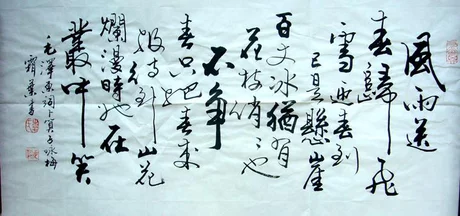 風雨送
春歸飛
雪迎春到
已是懸崖
百丈冰猶有
花枝俏〻也
不争
春只把春来
報待到山花
爛漫時她在
叢中笑
毛澤東詞卜算子咏梅
書